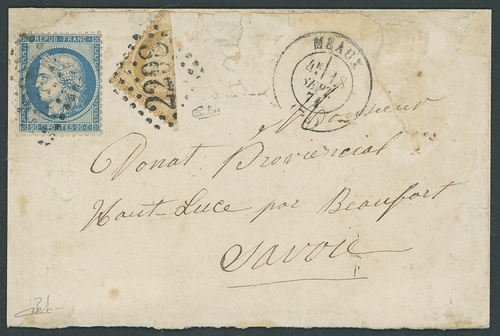 REPUB·FRANC·
20·C·POSTES·20·C
2298
MEAUX
SEPT
71
Monsieur
Donat Provincial
Haut-Luce par Beaufort
Savoie